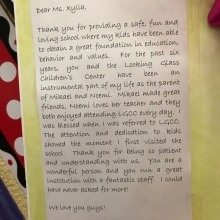 Dear Ms. Xylia,
Thank you for providing a safe, fun and
loving school where my kids have been able
to obtain a great foundation in education,
behavior and values. For the past six
years, you and the Looking Glass
Children's Center have been an
instrumental part of my life as the parent
of Mikael and Noemi. Mikael made great
friends, Noemi loves her teacher and they
both enjoyed attending LGCC every day. I
was blessed when I was referred to LGCC.
The attention and dedication to kids
showed the moment I first visited the
school. Thank you for being so patient
and understanding with us. You are a
wonderful person and you run a great
institution with a fantastic staff. I could
have never asked for more!
We love you guys!